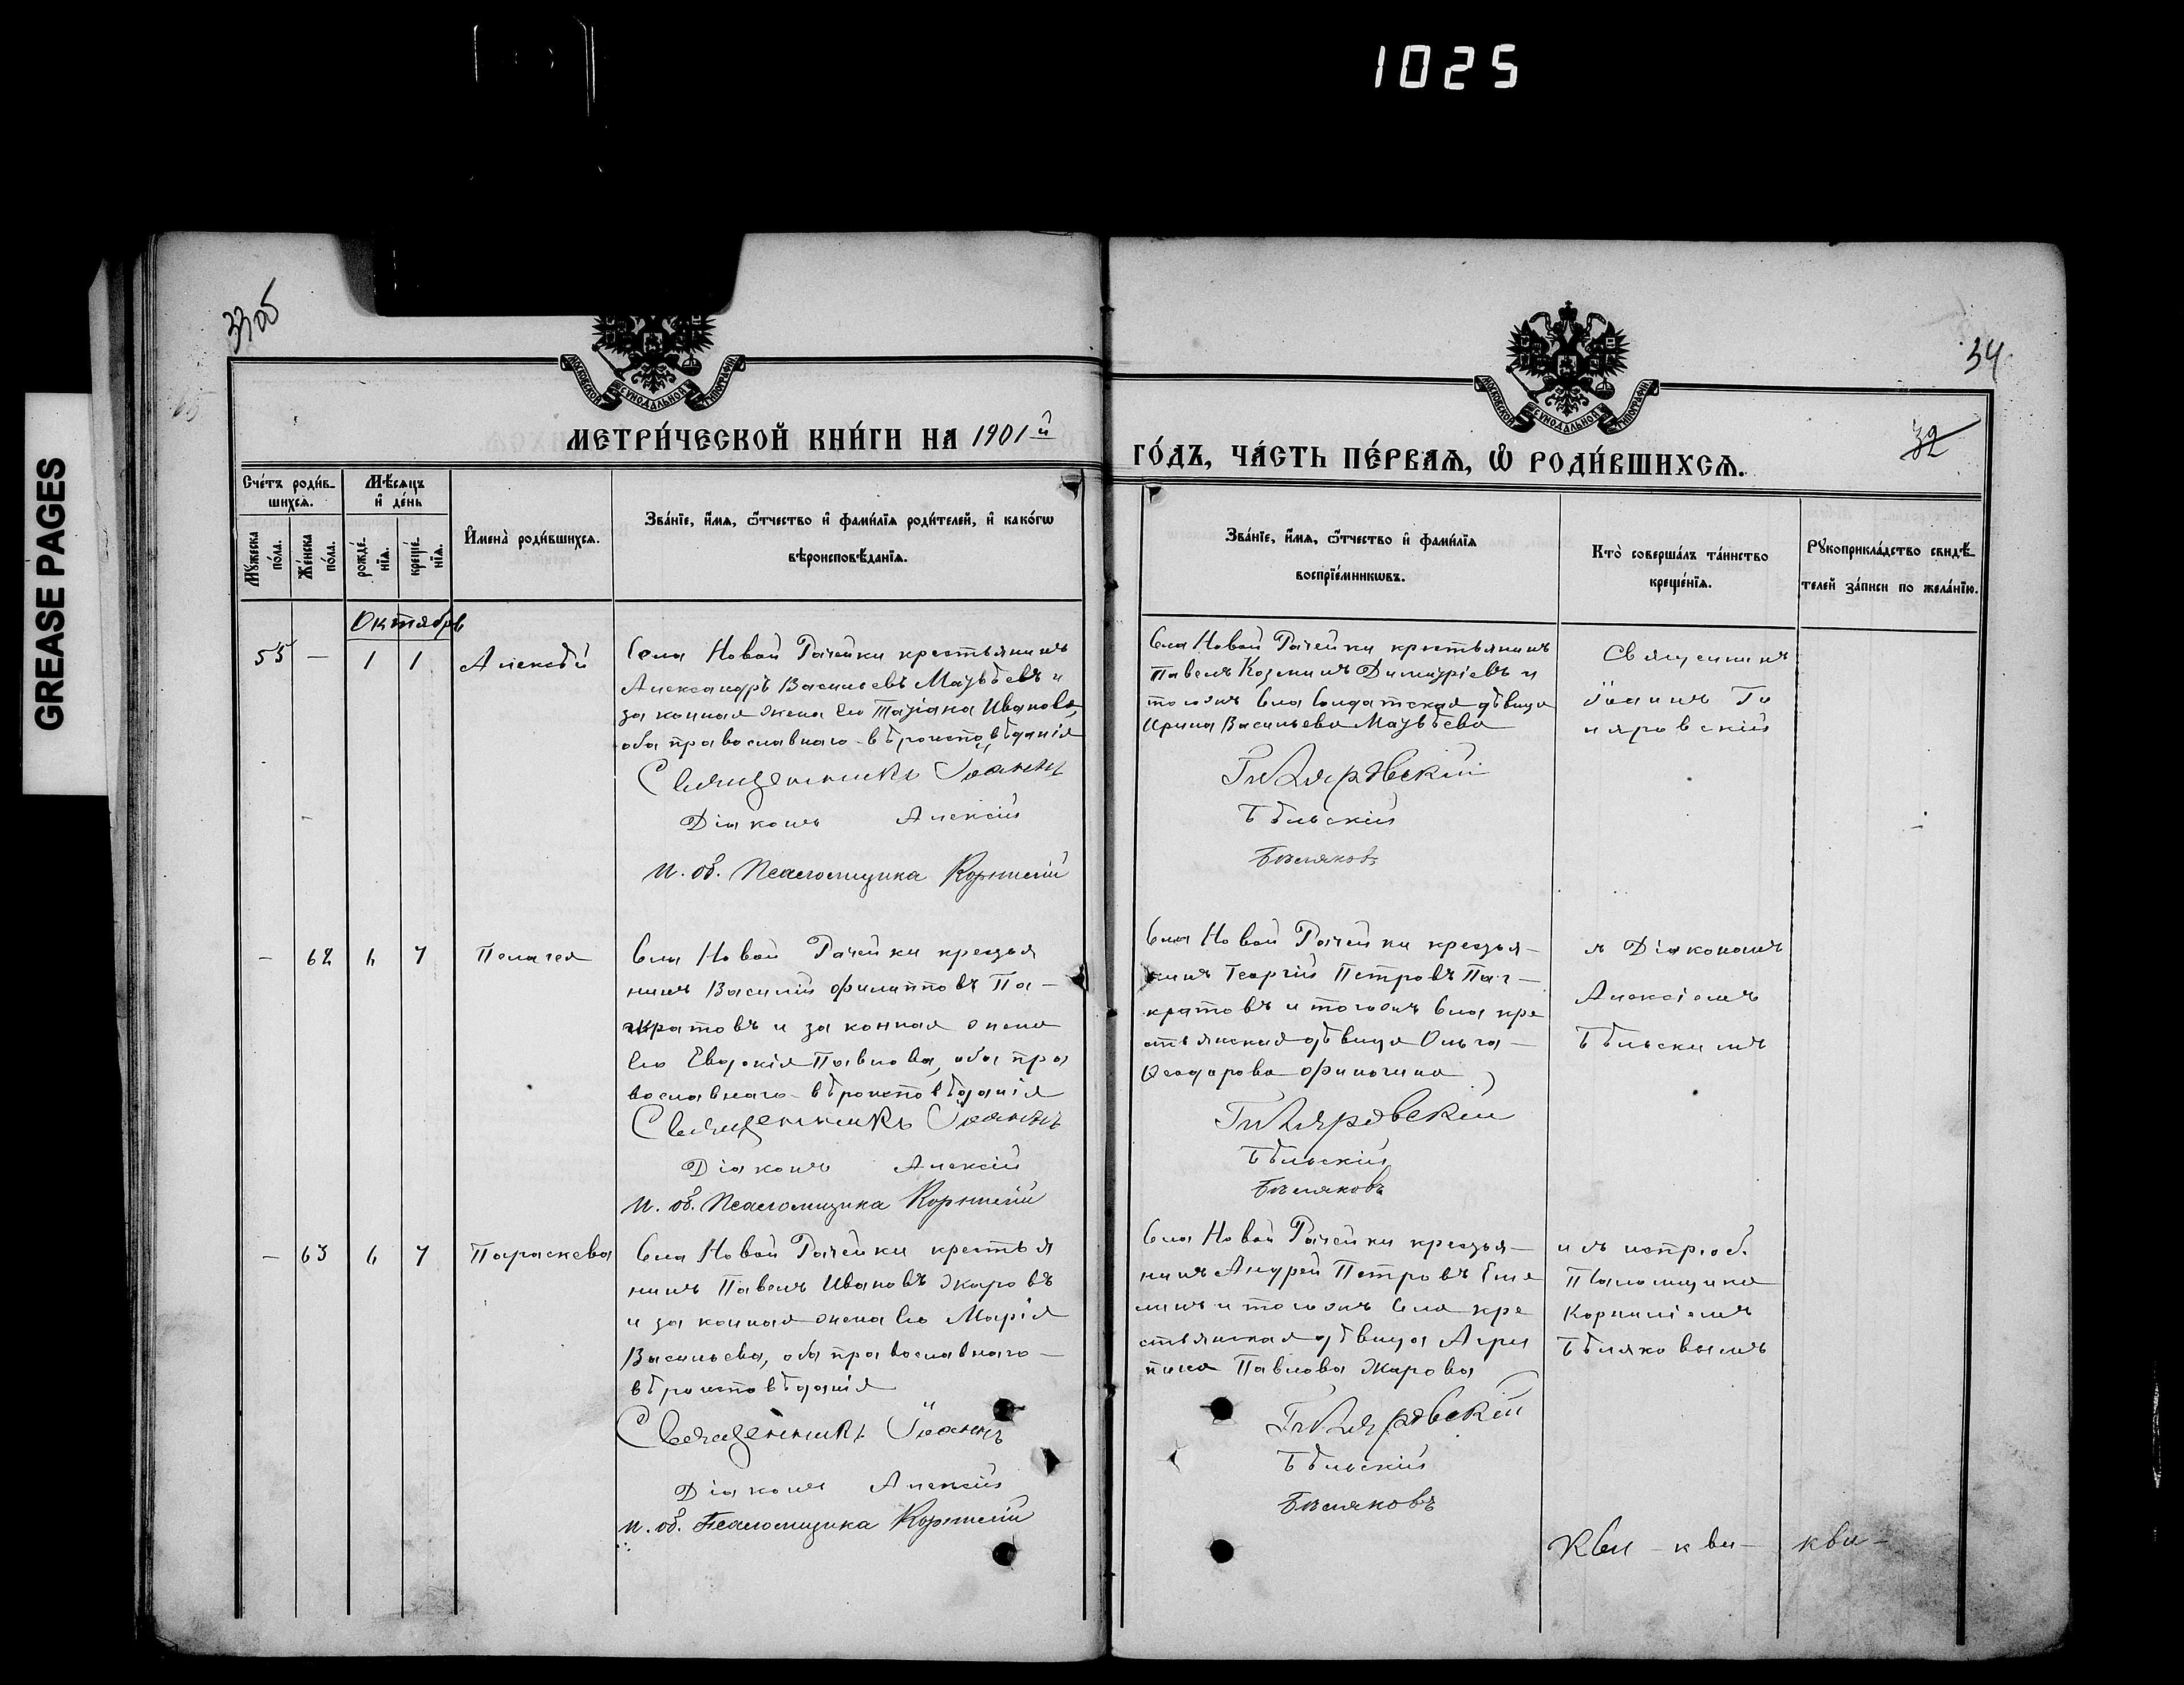 1025
GREASE PAGES
33 об
34
32
МОСКОВСКОЙ СѴНОДАЛЬНОЙ ТИПОГРАФІИ
МОСКОВСКОЙ СѴНОДАЛЬНОЙ ТИПОГРАФІИ
МЕТРИ́ЧЕСКОЙ КНИ́ГИ НА 1901й
ГО́ДЪ, ЧА́СТЬ ПЕ́РВАѦ, Ѡ҆ РОДИ́ВШИХСѦ.
Сче́тъ роди́в-
шихсѧ.
Мꙋ́жеска
по́ла.
Же́нска
по́ла.
Мѣ́сѧцъ
и҆ де́нь
рожде́-
нїѧ.
креще́-
нїѧ.
И҆мена̀ роди́вшихсѧ.
Зва́нїе, и҆́мѧ, ѻ҆́тчество и҆ фами́лїѧ роди́телей, и҆ како́гѡ
вѣроисповѣ́данїѧ.
Зва́нїе, и҆́мѧ, ѻ҆́тчество и҆ фами́лїѧ
воспрїе́мникѡвъ.
Кто̀ соверша́лъ та́инство
креще́нїѧ.
Рꙋкоприкла́дство свидѣ́-
телей за́писи по жела́нїю.
Октябрь
55 — 1 1 Алексѣй
Села Новой Рачейки крестьянинъ
Александръ Васильевъ Матвѣевъ и
законная жена его Татіана Иванова,
оба православнаго вѣроисповѣданія
Священникъ Іоаннъ
Діаконъ Алексій
И. об. Псаломщика Корнилій
Села Новой Рачейки крестьянинъ
Павелъ Козминъ Димитріевъ и
тогожъ села солдатская дѣвица
Ирина Васильева Матвѣева
Гиляровскій
Бѣльскій
Бѣляковъ
Священникъ
Іоаннъ Ги
ляровскій
— 62 6 7 Пелагея
Села Новой Рачейки кресть я
нинъ Василій Филипповъ Па-
нкратовъ и законная жена
его Евдокія Павлова, оба пра
вославнаго вѣроисповѣданія
Священникъ Іоаннъ
Діаконъ Алексій
И. об. Псаломщика Корнилій
Села Новой Рачейки крестья-
нинъ Георгій Петровъ Пан-
кратовъ и тогожъ села кре
стьянская дѣвица Ольга
Ѳеодорова Финогина
Гиляровскій
Бѣльскій
Бѣляковъ
съ Діакономъ
Алексіемъ
Бѣльскимъ
— 63 6 7 Параскева
Села Новой Рачейки крестья
нинъ Павелъ Ивановъ Жаровъ
и законная жена его Марія
Васильева, оба православнаго
вѣроисповѣданія
Священникъ Іоаннъ
Діаконъ Алексій
И. об. Псаломщика Корнилій
Села Новой Рачейки крестья-
нинъ Андрей Петровъ Еме
линъ и тогожъ села кре
стьянская дѣвица Агри
пина Павлова Жарова
Гиляровскій
Бѣльскій
Бѣляковъ
и съ испр. об.
Псаломщика
Корниліемъ
Бѣляковымъ